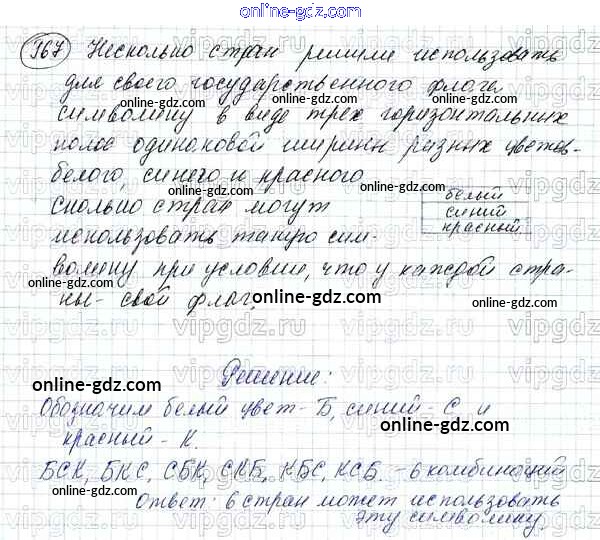 online-gdz.com
967 Несколько стран решили использовать
для своего государственного флага
символику в виде трёх горизонтальных
полос одинаковой ширины разных цветов-
белого, синего и красного
Сколько стран могут
использовать такую сим-
волику при условии, что у каждой стра-
ны - свой флаг.
белый
синий
красный
Решение:
Обозначим белый цвет - Б, синий - С и
красный - К.
БСК, БКС, СБК, СКБ, КБС, КСБ. - 6 комбинаций
Ответ: 6 стран может использовать
эту символику.
online-gdz.com
online-gdz.com
online-gdz.com
online-gdz.com
online-gdz.com
online-gdz.com
online-gdz.com
online-gdz.com
online-gdz.com
online-gdz.com
online-gdz.com
vipgdz.ru
vipgdz.ru
vipgdz.ru